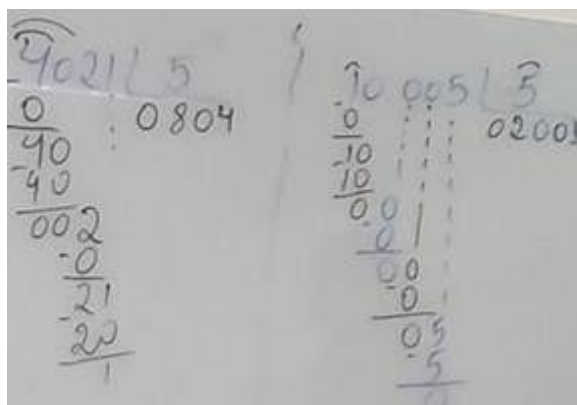 -4021 5
0 0804
40
-40
002
-0
21
-20
1
-10 005 5
0 0200
-10
10
00
-0
00
-0
05
-5
0